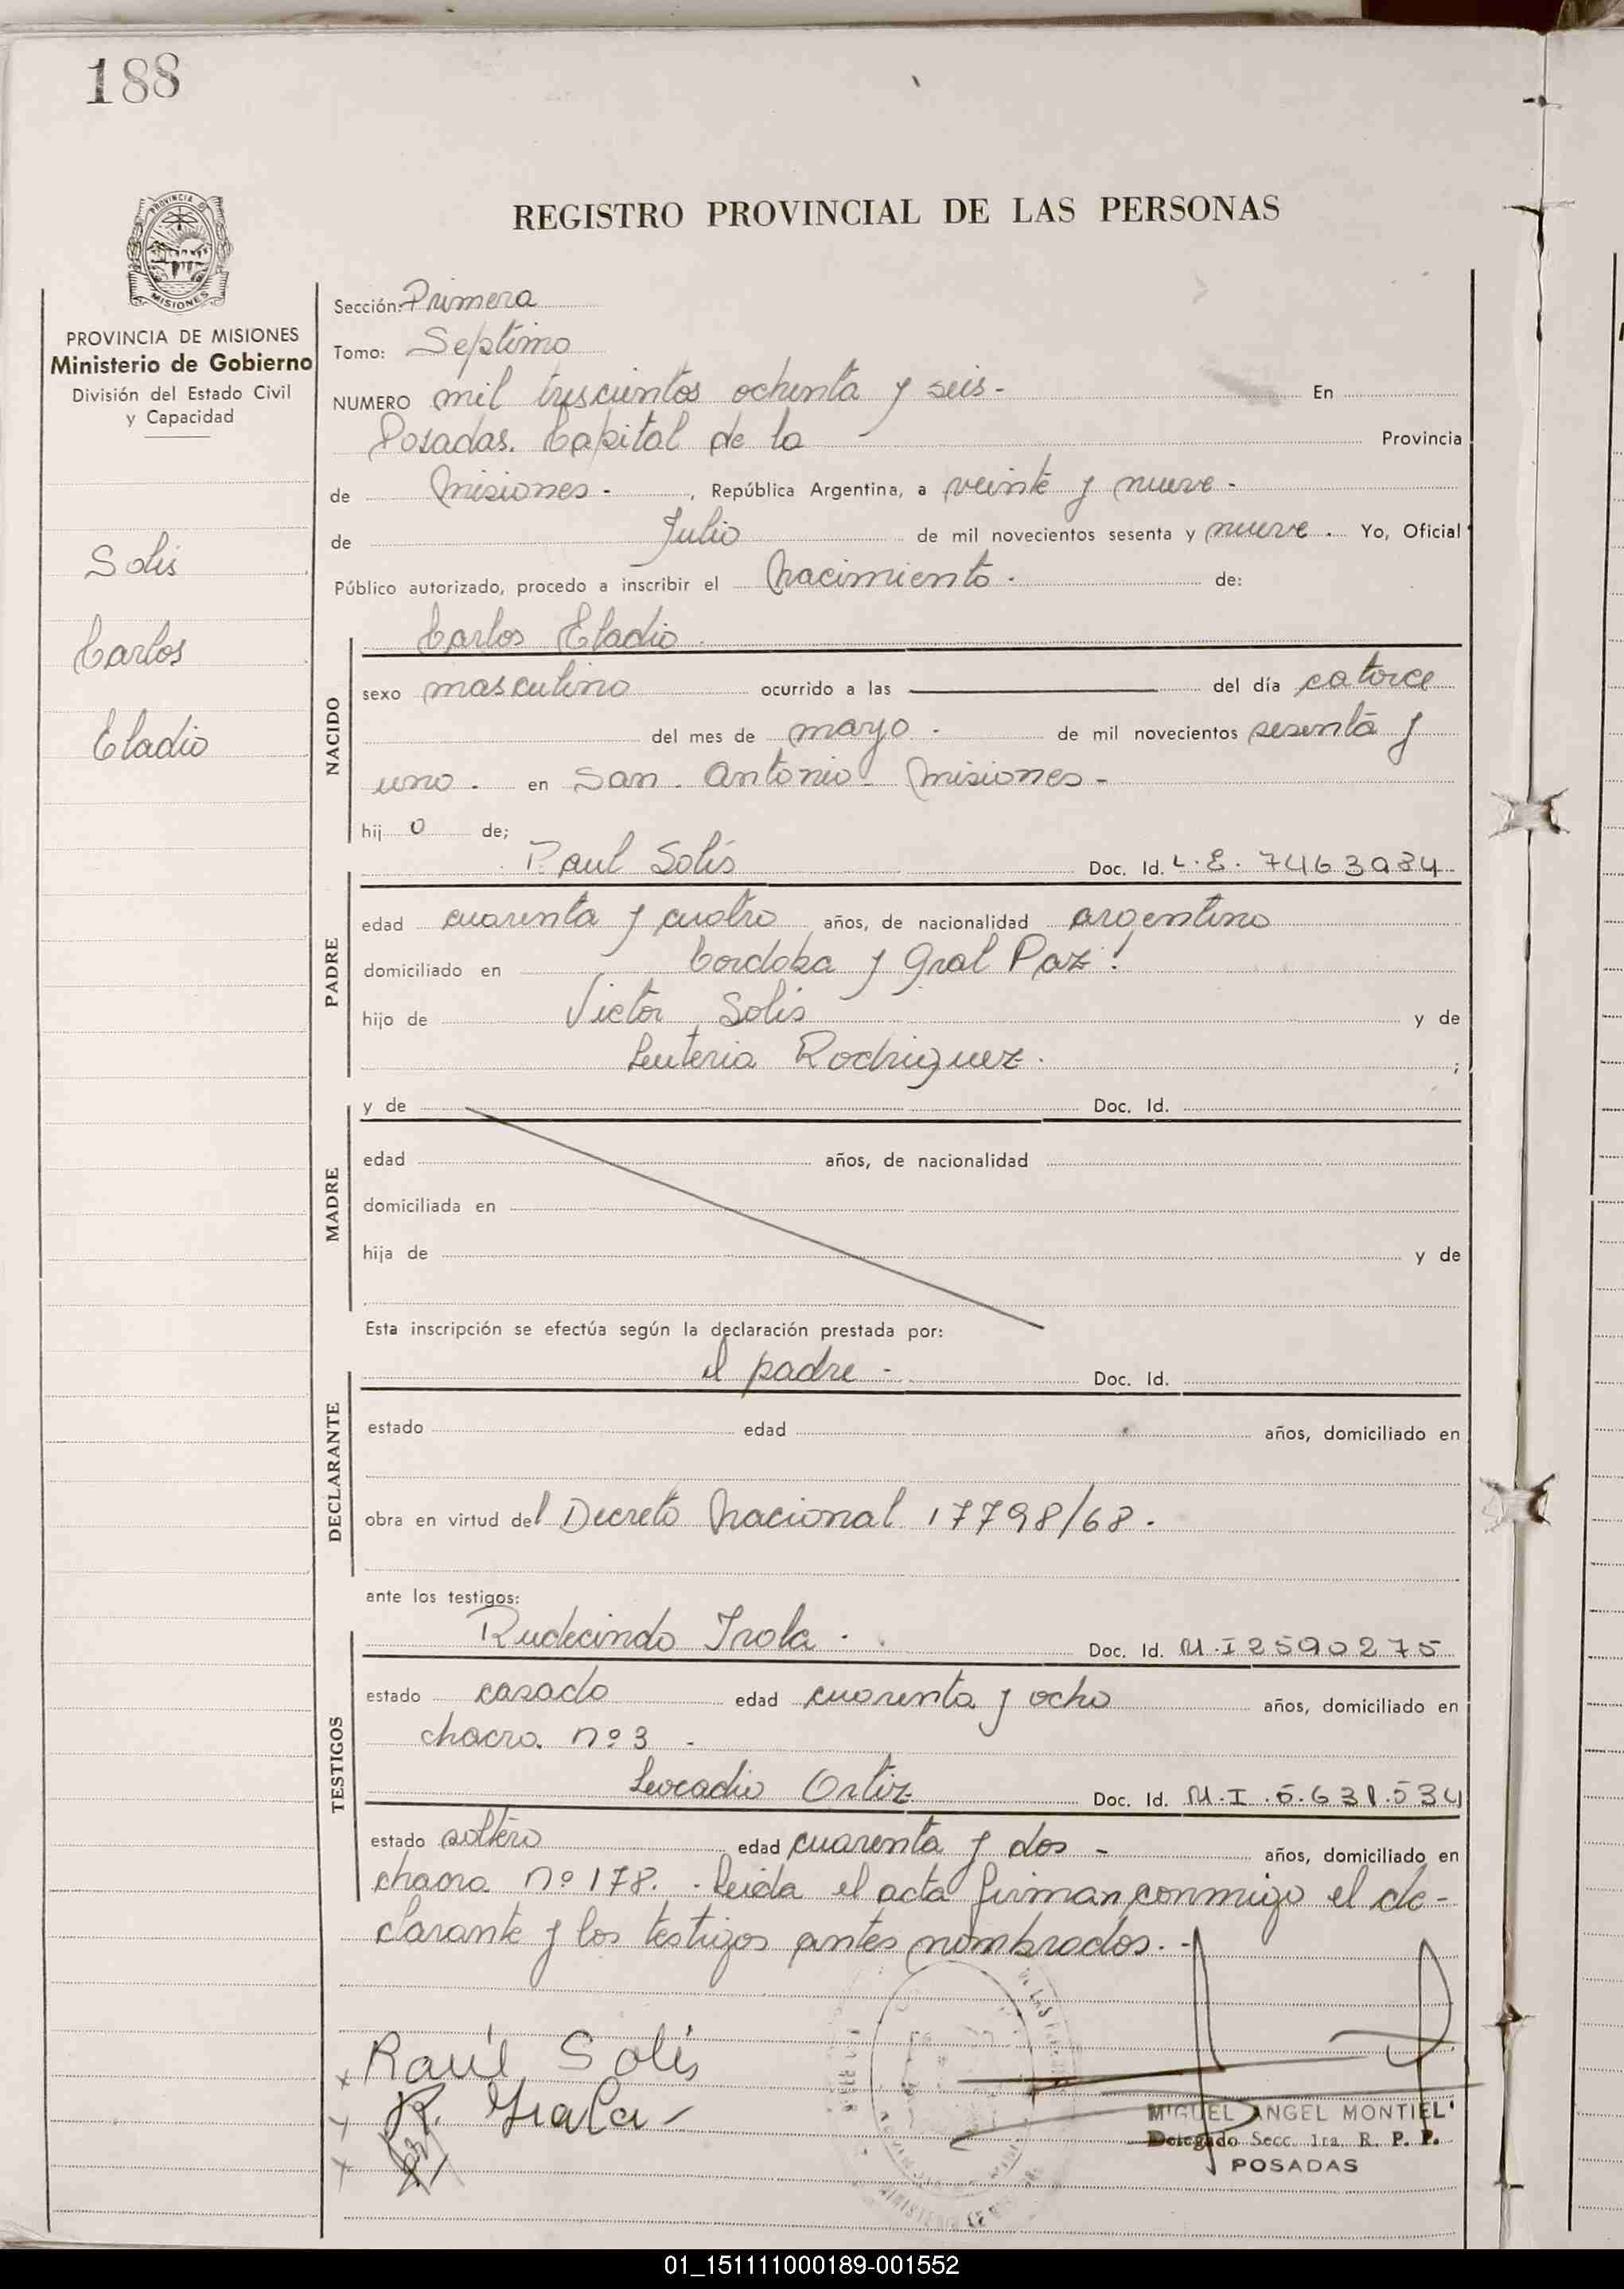 188
REGISTRO PROVINCIAL DE LAS PERSONAS
PROVINCIA DE
MISIONES
PROVINCIA DE MISIONES
Ministerio de Gobierno
División del Estado Civil
y Capacidad
Solis
Carlos
Eladio
Sección: Primera
Tomo: Septimo
NUMERO mil trescientos ochenta y seis - En
Posadas. Capital de la Provincia
de Misiones - , República Argentina, a veinte y nueve -
de Julio de mil novecientos sesenta y nueve . Yo, Oficial
Público autorizado, procedo a inscribir el Nacimiento . de:
Carlos Eladio .
NACIDO
sexo masculino ocurrido a las del día catorce
del mes de mayo . de mil novecientos sesenta y
uno . en San Antonio - Misiones -
hij o de;
Raul Solís Doc. Id. L. E. 7463034
PADRE
edad cuarenta y cuatro años, de nacionalidad argentino
domiciliado en Cordoba y Gral Paz !
hijo de Victor Solis y de
Leuteria Rodriguez . ;
MADRE
y de Doc. Id.
edad años, de nacionalidad
domiciliada en
hija de y de
Esta inscripción se efectúa según la declaración prestada por:
el padre - Doc. Id.
DECLARANTE
estado edad años, domiciliado en
obra en virtud del Decreto Nacional 17798/68 .
ante los testigos:
TESTIGOS
Rudecindo Irala . Doc. Id. M. I 2590275
estado casado edad cuarenta y ocho años, domiciliado en
chacra nº 3 -
Leocadio Ortiz Doc. Id. M. I. 5.631.534
estado soltero edad cuarenta y dos - años, domiciliado en
chacra nº 178. - Leida el acta firman conmigo el de-
clarante y los testigos antes nombrados. -
x Raúl Solís
R. Irala
MIGUEL ANGEL MONTIEL
Delegado Secc. 1ra. R. P. P.
POSADAS
01_151111000189-001552